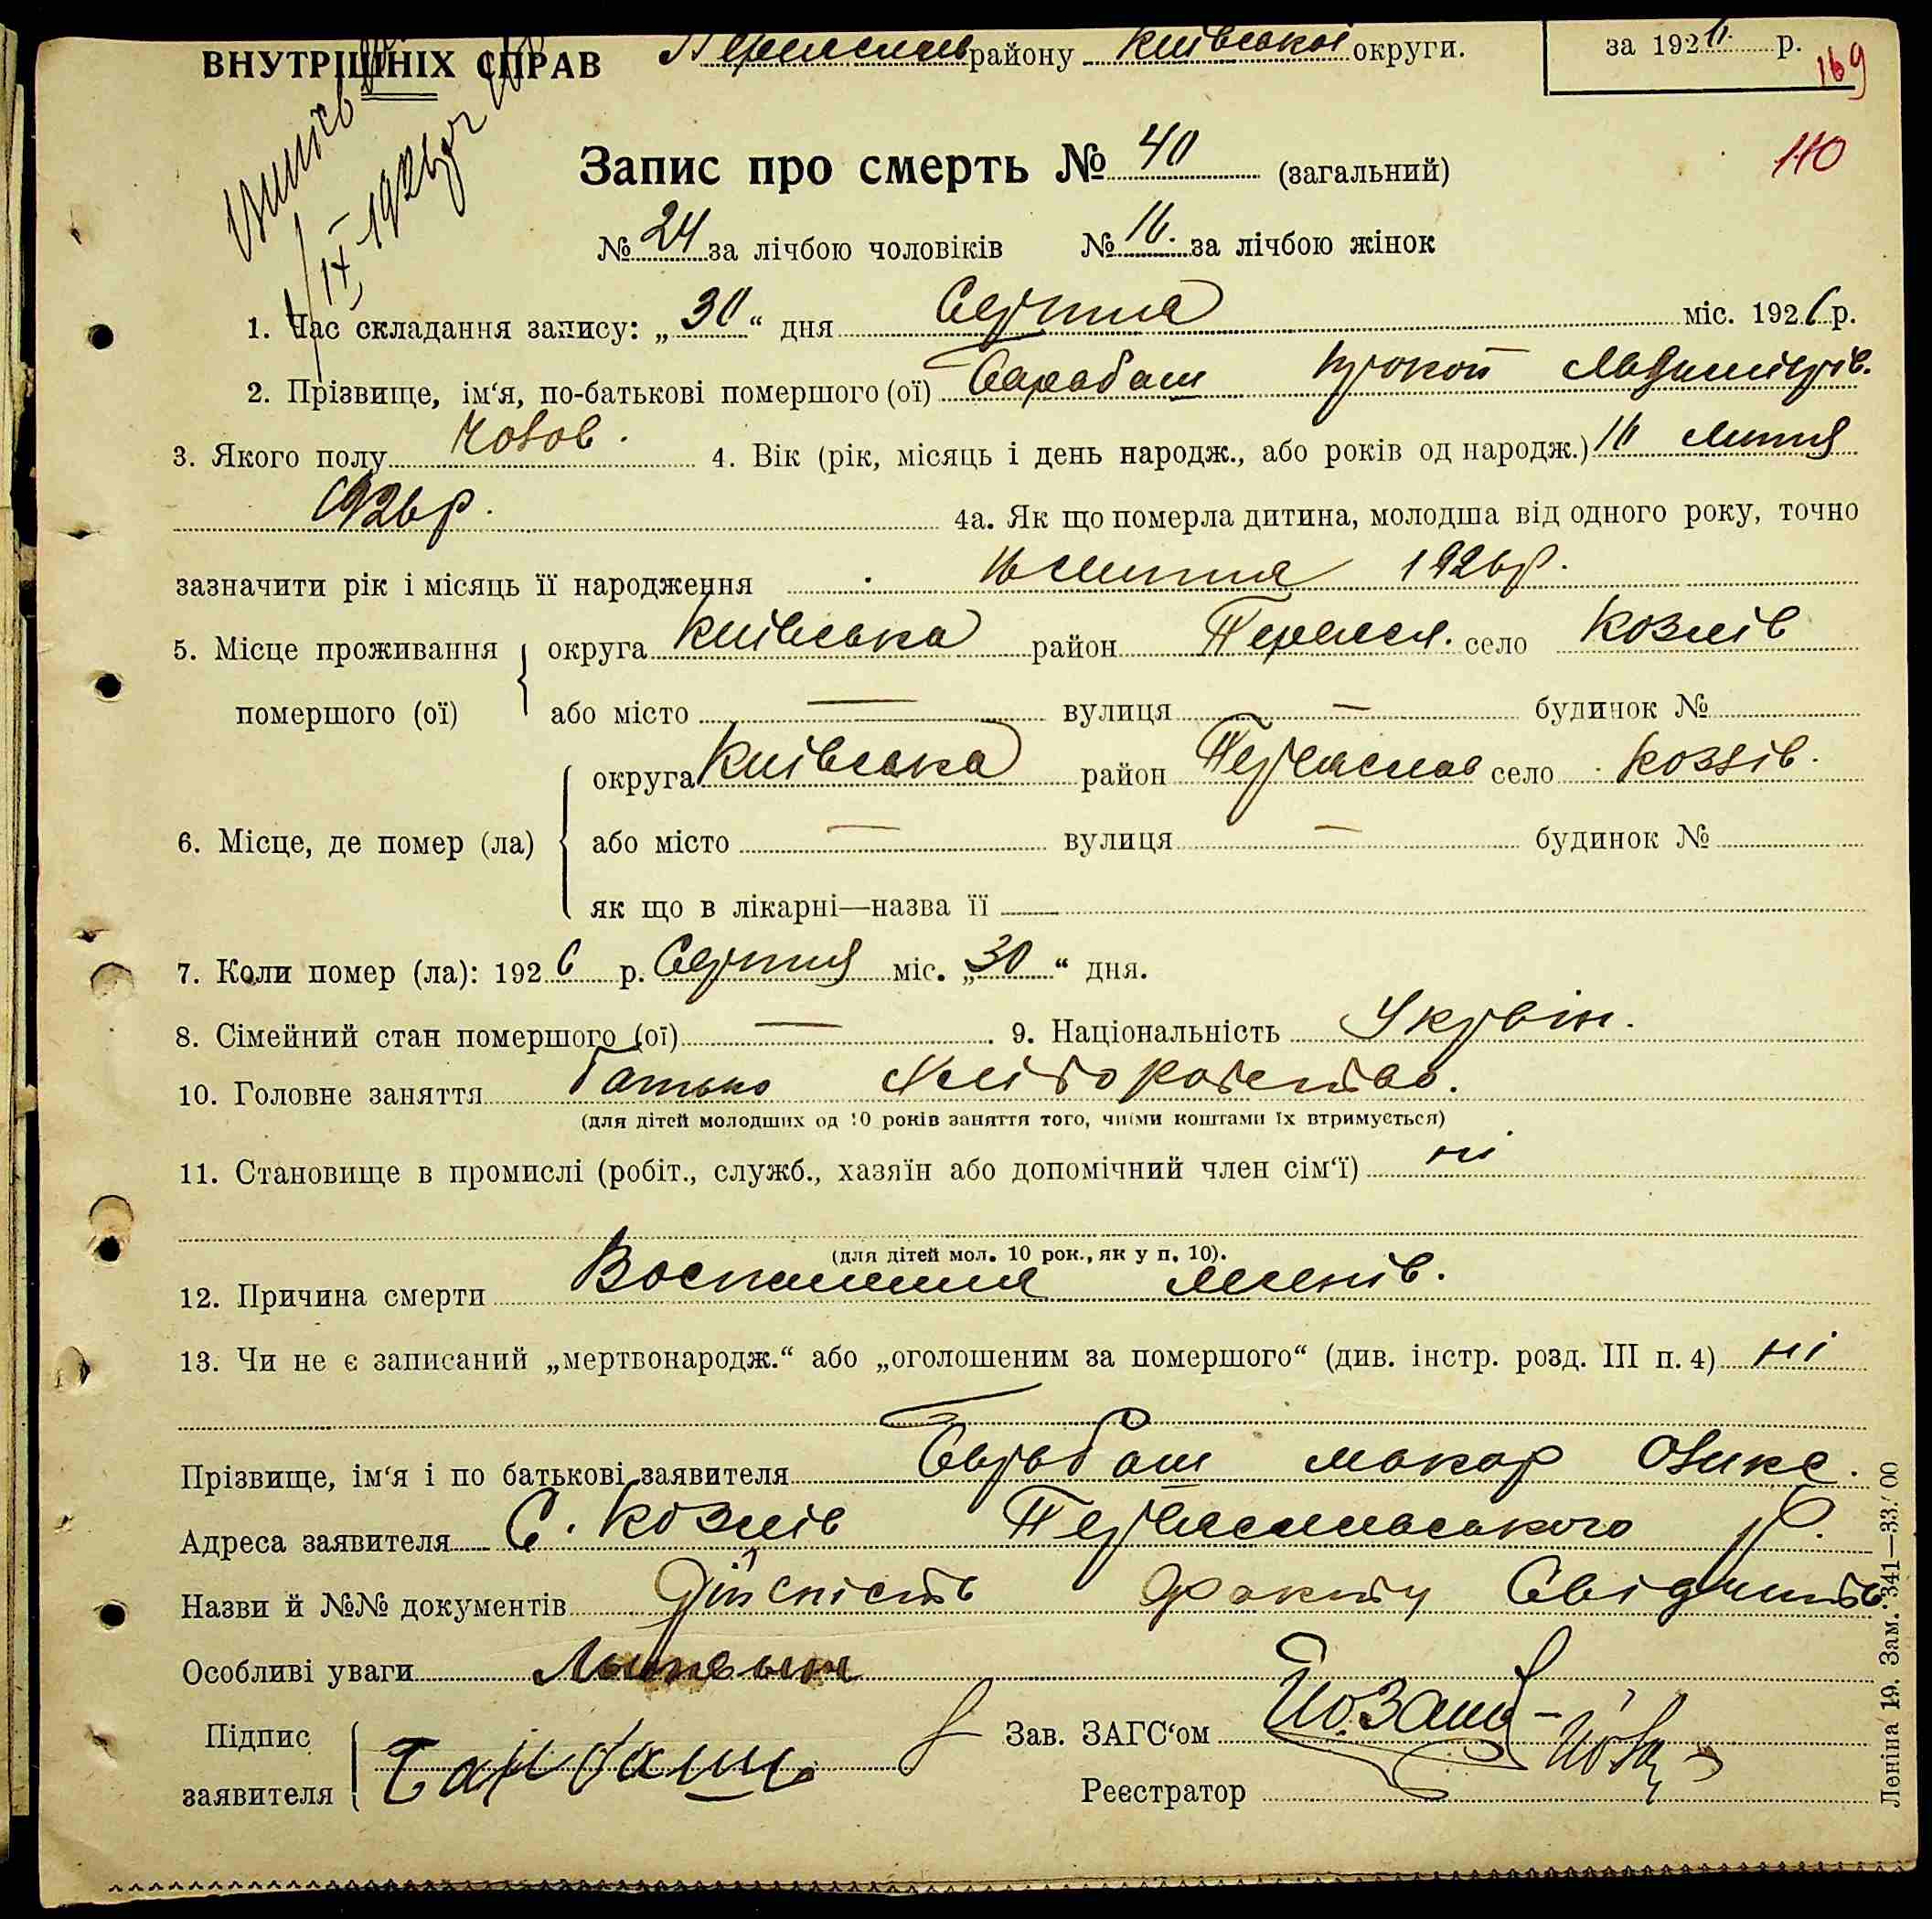 ВНУТРІШНІХ СПРАВ Переяслав району Київської округи. за 1926 р.
169
110
Запис про смерть № 40 (загальний)
№ 24 за лічбою чоловіків № 16. за лічбою жінок
1. Час складання запису: „30“ дня Серпня міс. 1926 р.
2. Прізвище, ім‘я, по-батькові помершого (ої) Барабаш Прокоп
3. Якого полу Чолов. 4. Вік (рік, місяць і день народж., або років од народж.) 16 Липня
1926 р. 4а. Як що померла дитина, молодша від одного року, точно
зазначити рік і місяць її народження 16 Липня 1926 р.
5. Місце проживання округа Київська район Переясл. село Козлів
помершого (ої) або місто — вулиця — будинок №
округа Київська район Переяслав село Козлів.
6. Місце, де помер (ла) або місто — вулиця — будинок №
як що в лікарні—назва її —
7. Коли помер (ла): 1926 р. Серпня міс. „30“ дня.
8. Сімейний стан помершого (ої) — . 9. Національність Україн.
10. Головне заняття батько Хліборобство.
(для дітей молодших од 10 років заняття того, чиїми коштами їх втримується)
11. Становище в промислі (робіт., служб., хазяїн або допомічний член сім‘ї) ні
(для дітей мол. 10 рок., як у п. 10).
12. Причина смерти Воспалення легенів.
13. Чи не є записаний „мертвонародж.“ або „оголошеним за помершого“ (див. інстр. розд. III п. 4) ні
Прізвище, ім‘я і по батькові заявителя Барабаш Макар Олекс.
Адреса заявителя С. Козлів Переяславського р.
Назви й №№ документів Дійсність факту Свідчить
Особливі уваги
Підпис
заявителя Барабаш
Зав. ЗАГС‘ом
Реєстратор
Леніна 19. Зам. 341—33.000